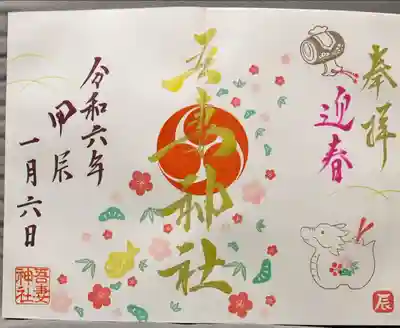 奉拝
迎春
吾妻神社
令和六年
甲辰
一月六日
辰
吾妻
神社